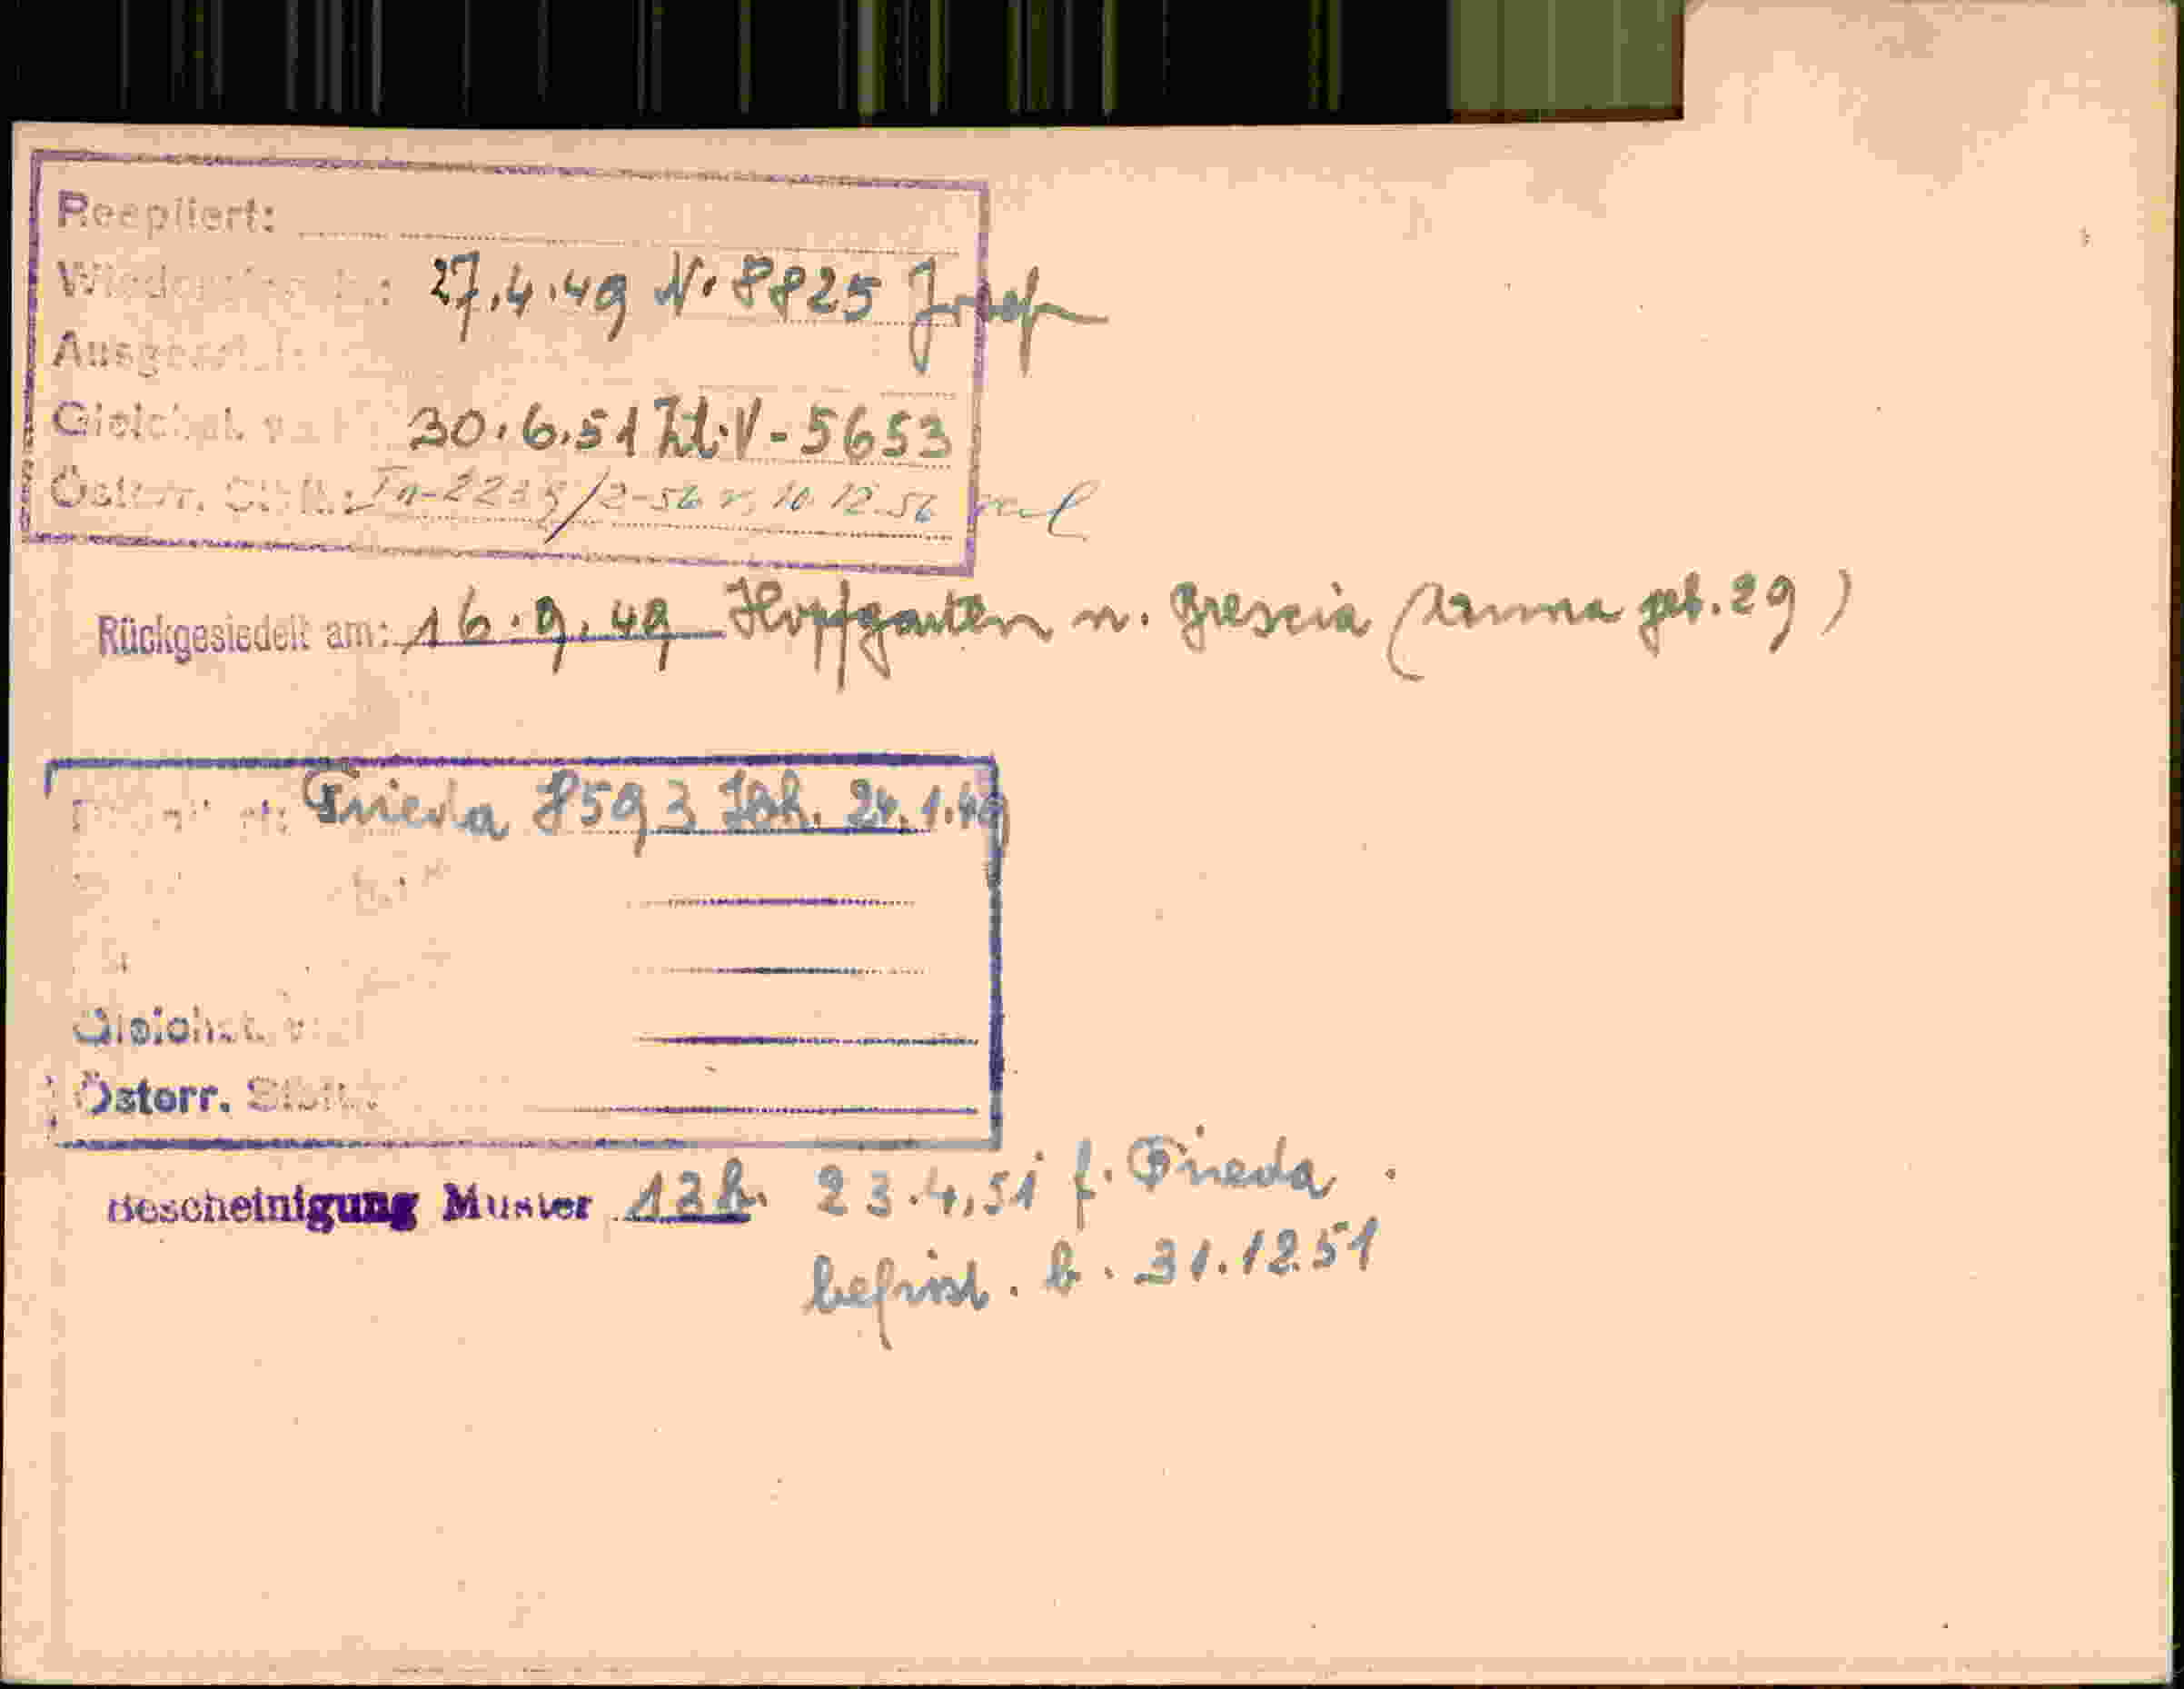 Reepliert:
27.4.49 N. 8825 Josef
Gleichst. 30.6.51 Zl. V - 5653
Österr. Stbft.: Ia-2235/2-56 v. 10.12.56
Rückgesiedelt am: 16.9.49 Hopfgarten n. Brescia (Anna geb. 29)
Frieda 8593 24.1.49
Gleichst.
Österr. Stbft.
Bescheinigung Muster 13 h. 23.4.51 f. Frieda.
befrist. b. 31.12.51